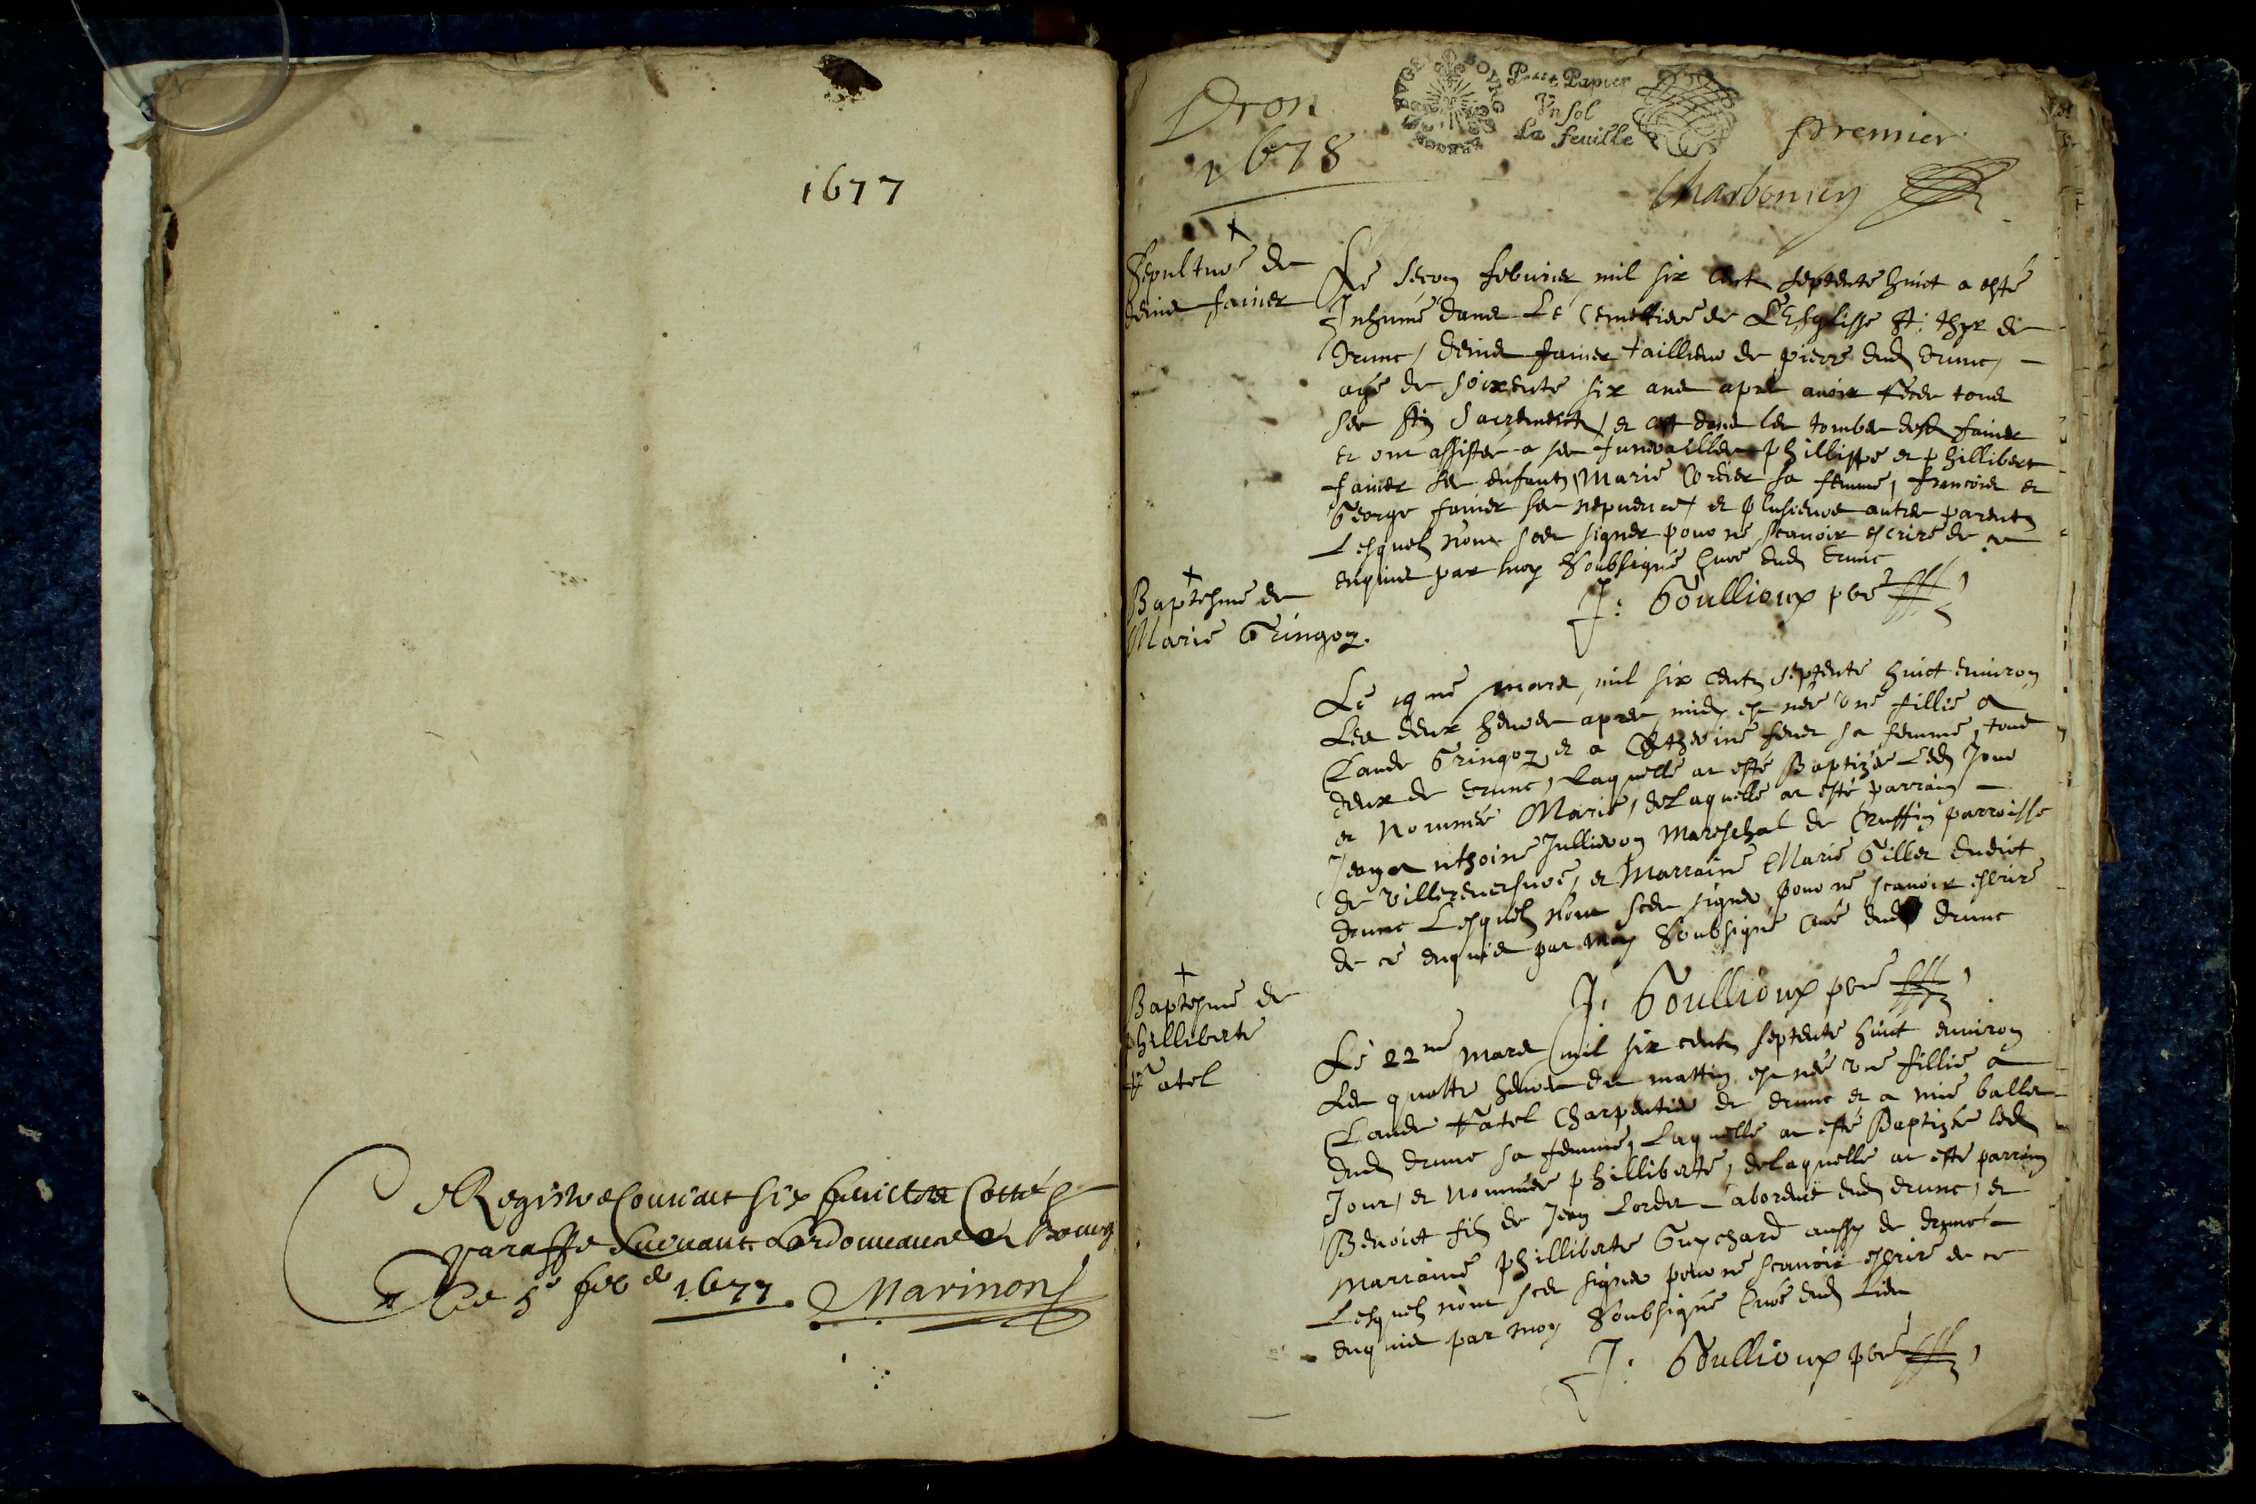 1677
Ce Registre Contient six feuillets Cottés et
paraffé suivant Lordonnance a Bourg
Ce 5e feb 1677. Marinon
Dron
1678
BVGEY BOVRG
Petit Papier
Vn sol
La feuille
premier
Charbonnier
Sepulture de
denis fainer
Le secon febvrier mil six cent septente huict a esté
Inhumé dans Le Cemettiere de L'Esglisse St: thyr de
Drunc, denis fainer taillieur de pierre dud drunc,
agé de soixente six ans apres avoir receu tous
ses sts Sacrements, et est dans les tombes desd fainer
et ont assistés a ses funerailles phillippe et phillibert
fainer ses enfants, Marie Cordier sa femme, francois et
George fainer ses nepveux, et plusieurs autres parents
Lesquels n'ont sceu signer pour ne scavoir escrire de ce
enquis par moy Soubsigné Curé dud drunc
J: Goullioux pbre
Baptesme de
Marie Gringoz.
Le 19 me mars mil six cents septente huict environ
Les deux heures apres midy est née une fillie a
Claude Gringoz et a Catherine feuer sa femme, tous
deux de drunc, Laquelle at esté Baptizée Led Jour
et Nommée Marie, de Laquelle at esté parrain
Jean anthoine Jullieron Mareschal de Cruffin parroisse
de Villereversure, et Marraine Marie Giller dudict
drunc Lesquels n'ont sceu signer pour ne scavoir escrire
de ce enquis par moy Soubsigné Curé dud drunc
J: Goullioux pbre
Baptesme de
philliberte
Vatel
Le 22me mars mil six cents septente huict environ
Les quattre heures du mattin est née une fillie a
Claude Vatel Charpentier de drunc et a mie baller
dud drunc sa femme, Laquelle at esté Baptizée led
Jour, et Nommée philliberte, de laquelle at esté parrain
Benoict fils de Jean Corder Laboureur dud drunc, et
Marraine philliberte Guychard aussy de drunc
Lesquels n'ont sceu signer pour ne scavoir escrire de ce
enquis par moy Soubsigné Curé dud Lieu
J: Goullioux pbre